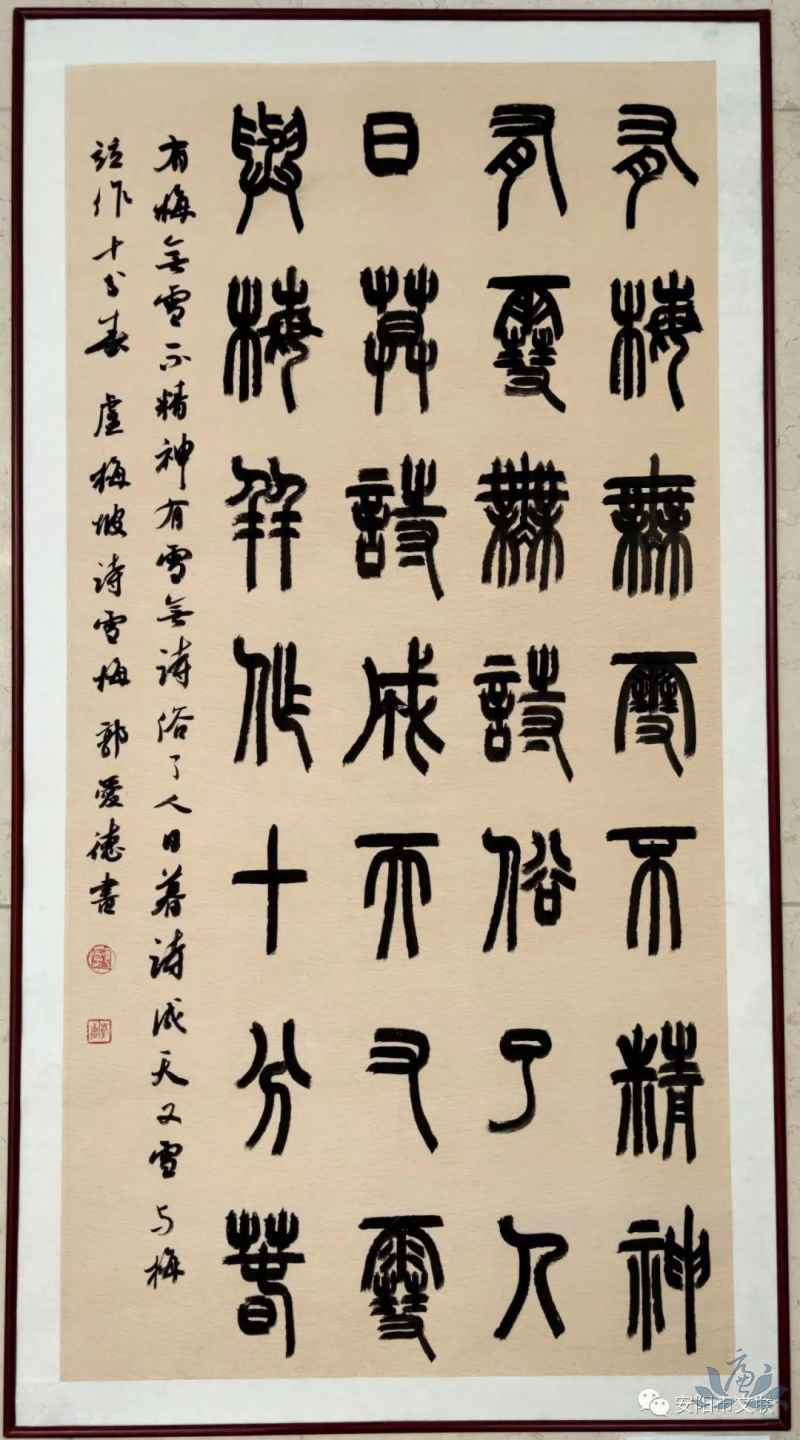 有梅無雪不精神
有雪無詩俗了人
日莫詩成天又雪
與梅并作十分春
有梅無雪不精神有雪無詩俗了人日暮詩成天又雪与梅
並作十分春 盧梅坡詩雪梅 郭愛德書
安阳市文联